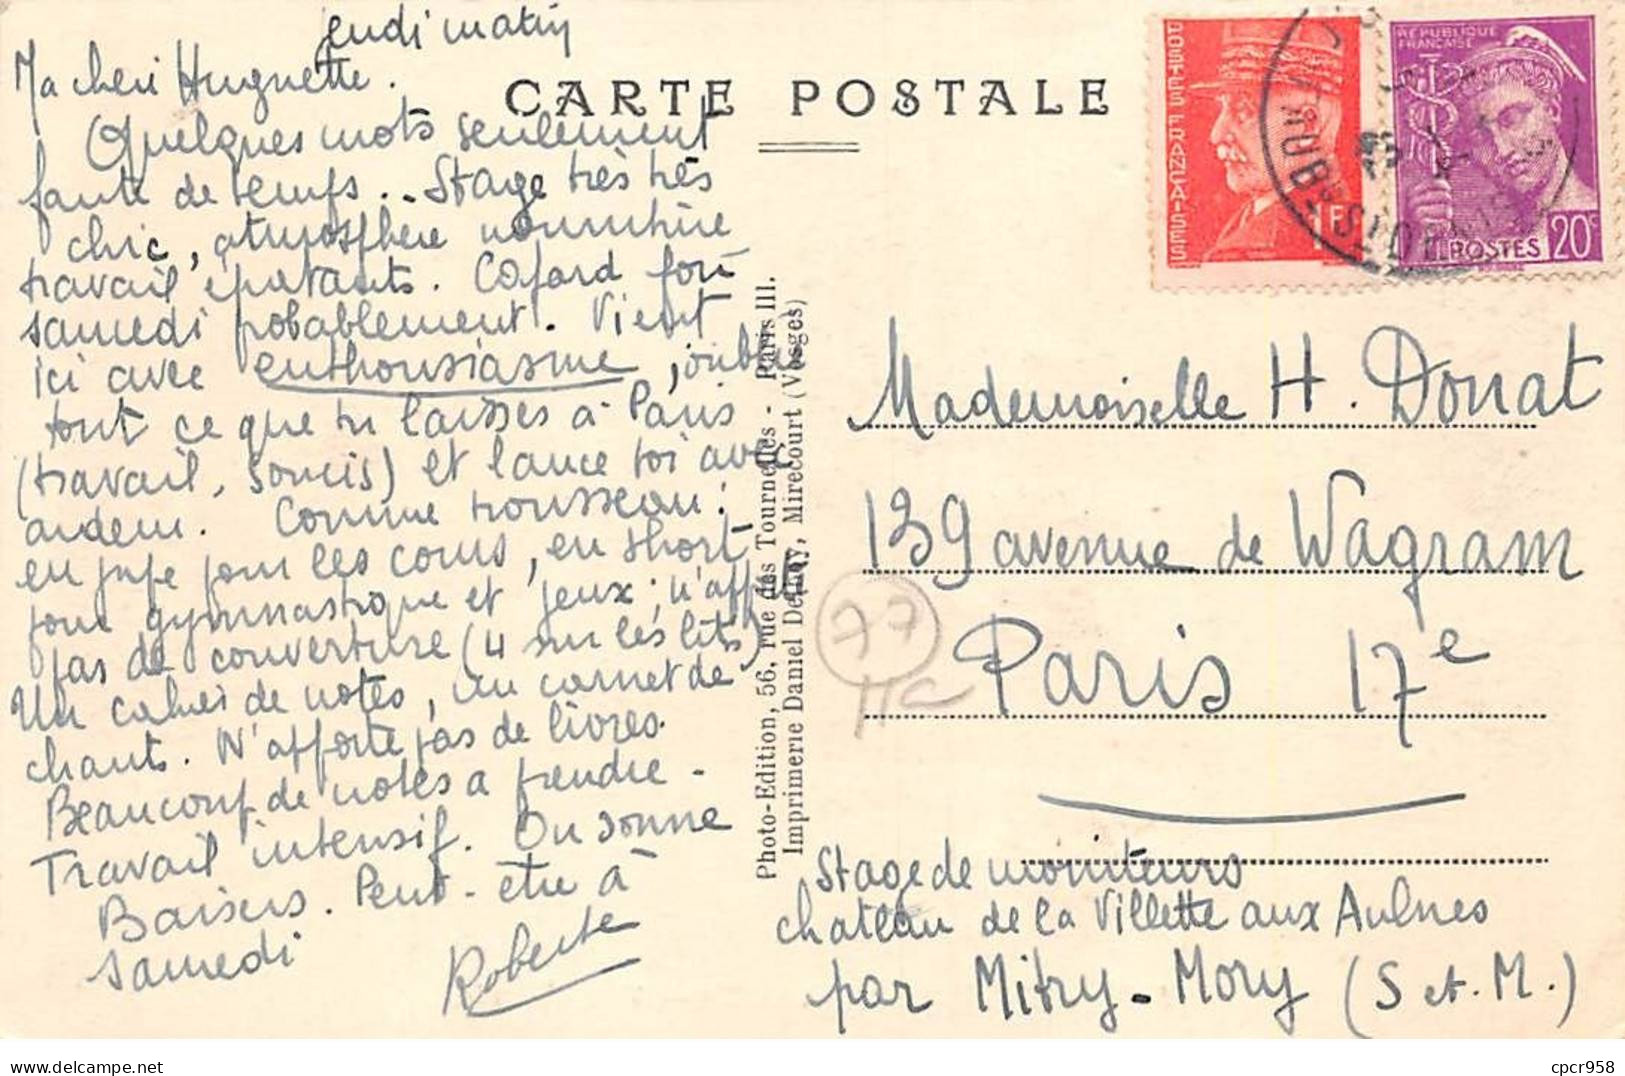 jeudi matin
Ma cheri Huguette.
Quelques mots seulement
faute de temps.. Stage très très
chic, atmosphère nourrture
travail épatants. Cafard fou
samedi probablement. Vient
ici avec enthousiasme, oublie
tout ce que tu laisses à Paris
(travail, soucis) et lance toi avec
ardeur. Comme trousseau:
en jupe pour les cours, en short
pour gymnastique et jeux; n'apporte
pas de couverture (4 sur les lits)
Un cahier de notes, un carnet de
chants. N'apporte pas de livres.
Beaucoup de notes a prendre -
Travail intensif. On sonne
Baisers. Peut-être à
samedi
Roberte
CARTE POSTALE
Photo-Edition, 56, rue des Tournelles - Paris III.
Imprimerie Daniel Delboy, Mirecourt (Vosges)
POSTES FRANCAISES
1F
REPUBLIQUE
FRANCAISE
POSTES 20c
Mademoiselle H. Donat
139 avenue de Wagram
Paris 17e
77
Stage de moniteurs
chateau de la Villette aux Aulnes
par Mitry-Mory (S et. M.)
delcampe.net
cpcr958